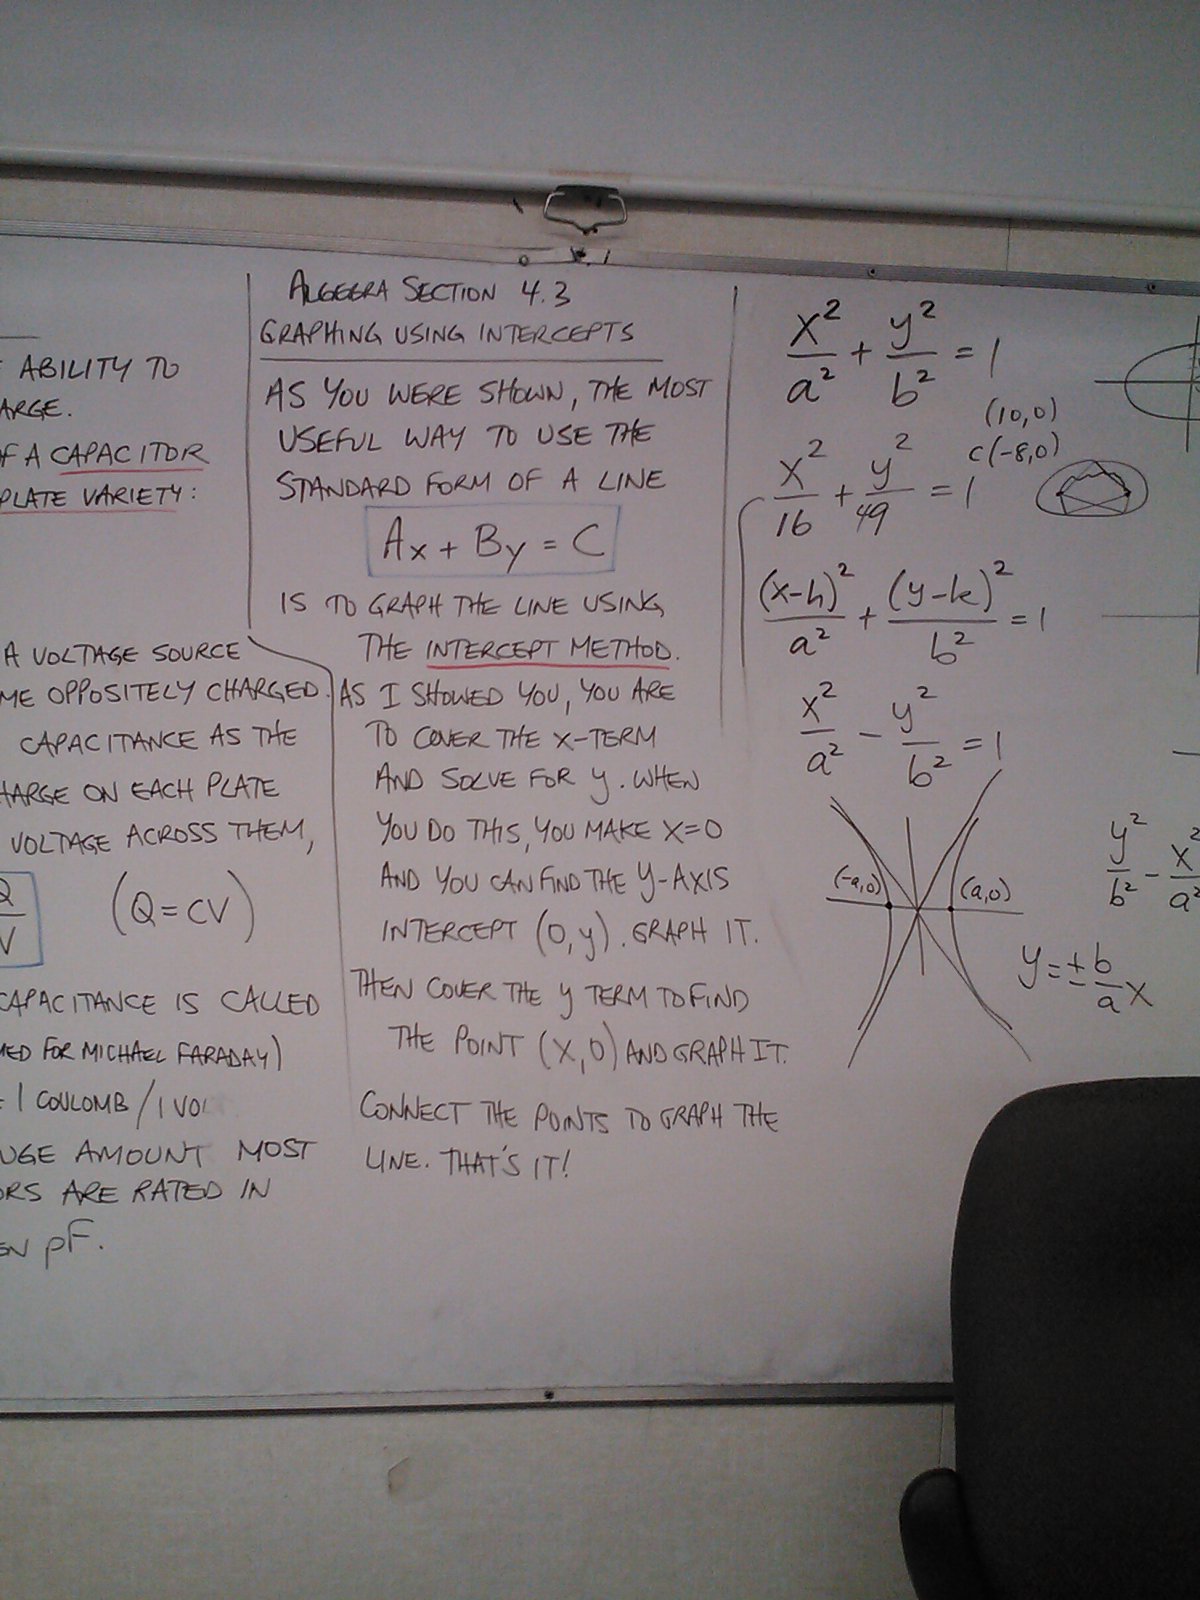 ABILITY TO
ARGE.
OF A CAPACITOR
PLATE VARIETY:
A VOLTAGE SOURCE
ME OPPOSITELY CHARGED.
CAPACITANCE AS THE
HARGE ON EACH PLATE
VOLTAGE ACROSS THEM,
Q/V (Q=CV)
CAPACITANCE IS CALLED
MED FOR MICHAEL FARADAY)
1 COULOMB/1 VO
UGE AMOUNT MOST
ORS ARE RATED IN
EN pF.
ALGEBRA SECTION 4.3
GRAPHING USING INTERCEPTS
AS YOU WERE SHOWN, THE MOST
USEFUL WAY TO USE THE
STANDARD FORM OF A LINE
Ax + By = C
IS TO GRAPH THE LINE USING
THE INTERCEPT METHOD.
AS I SHOWED YOU, YOU ARE
TO COVER THE X-TERM
AND SOLVE FOR y. WHEN
YOU DO THIS, YOU MAKE X=0
AND YOU CAN FIND THE Y-AXIS
INTERCEPT (0,y). GRAPH IT.
THEN COVER THE y TERM TO FIND
THE POINT (X,0) AND GRAPH IT.
CONNECT THE POINTS TO GRAPH THE
LINE. THAT'S IT!
x²/a² + y²/b² = 1
(10,0)
c(-8,0)
x²/16 + y²/49 = 1
(x-h)²/a² + (y-k)²/b² = 1
x²/a² - y²/b² = 1
(-a,0) (a,0)
y²/b² - x²/a²
y = ± b/a x